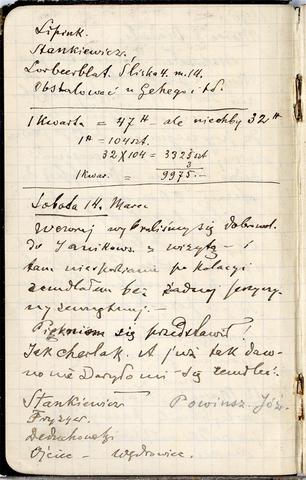 Lipink.
Stankiewicz.
Lorbeerblat. Śliska 4. m. 14.
Obstalować u Gehego i tS.
1 Kwarta = 47 # ale niechby 32 #
1 # = 104 szt.
32 X 104 = 3325 szt
3
1 Kwar. = 9975.—
Sobota 14. Marca
Wczoraj wybraliśmy się dobrowol.
do Janikows. z wizytą — i
tam niespodzianie po kolacyi
zemdlałem bez żadnej przyczy-
ny zewnętrznej.—
Piękniem się przedstawił!
Jak cherlak. A już tak daw-
no nie zdarzyło mi się zemdleć.
Stankiewicz Powinsz. Józ.
Fryzyer.
Ojciec — Wędrowiec.